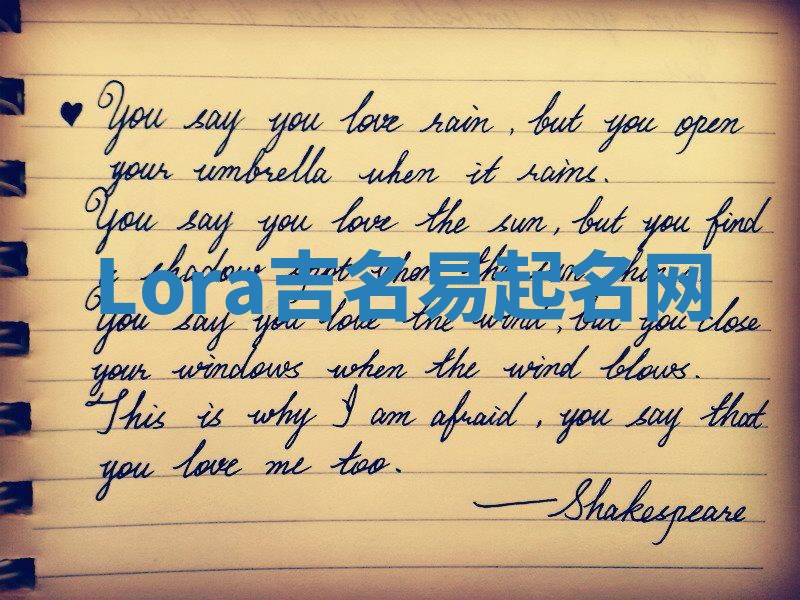 ♥ You say you love rain, but you open
your umbrella when it rains.
You say you love the sun, but you find
a shadow spot when the sun shines.
Lora吉名易起名网
You say you love the wind, but you close
your windows when the wind blows.
This is why I am afraid, you say that
you love me too.
—Shakespeare